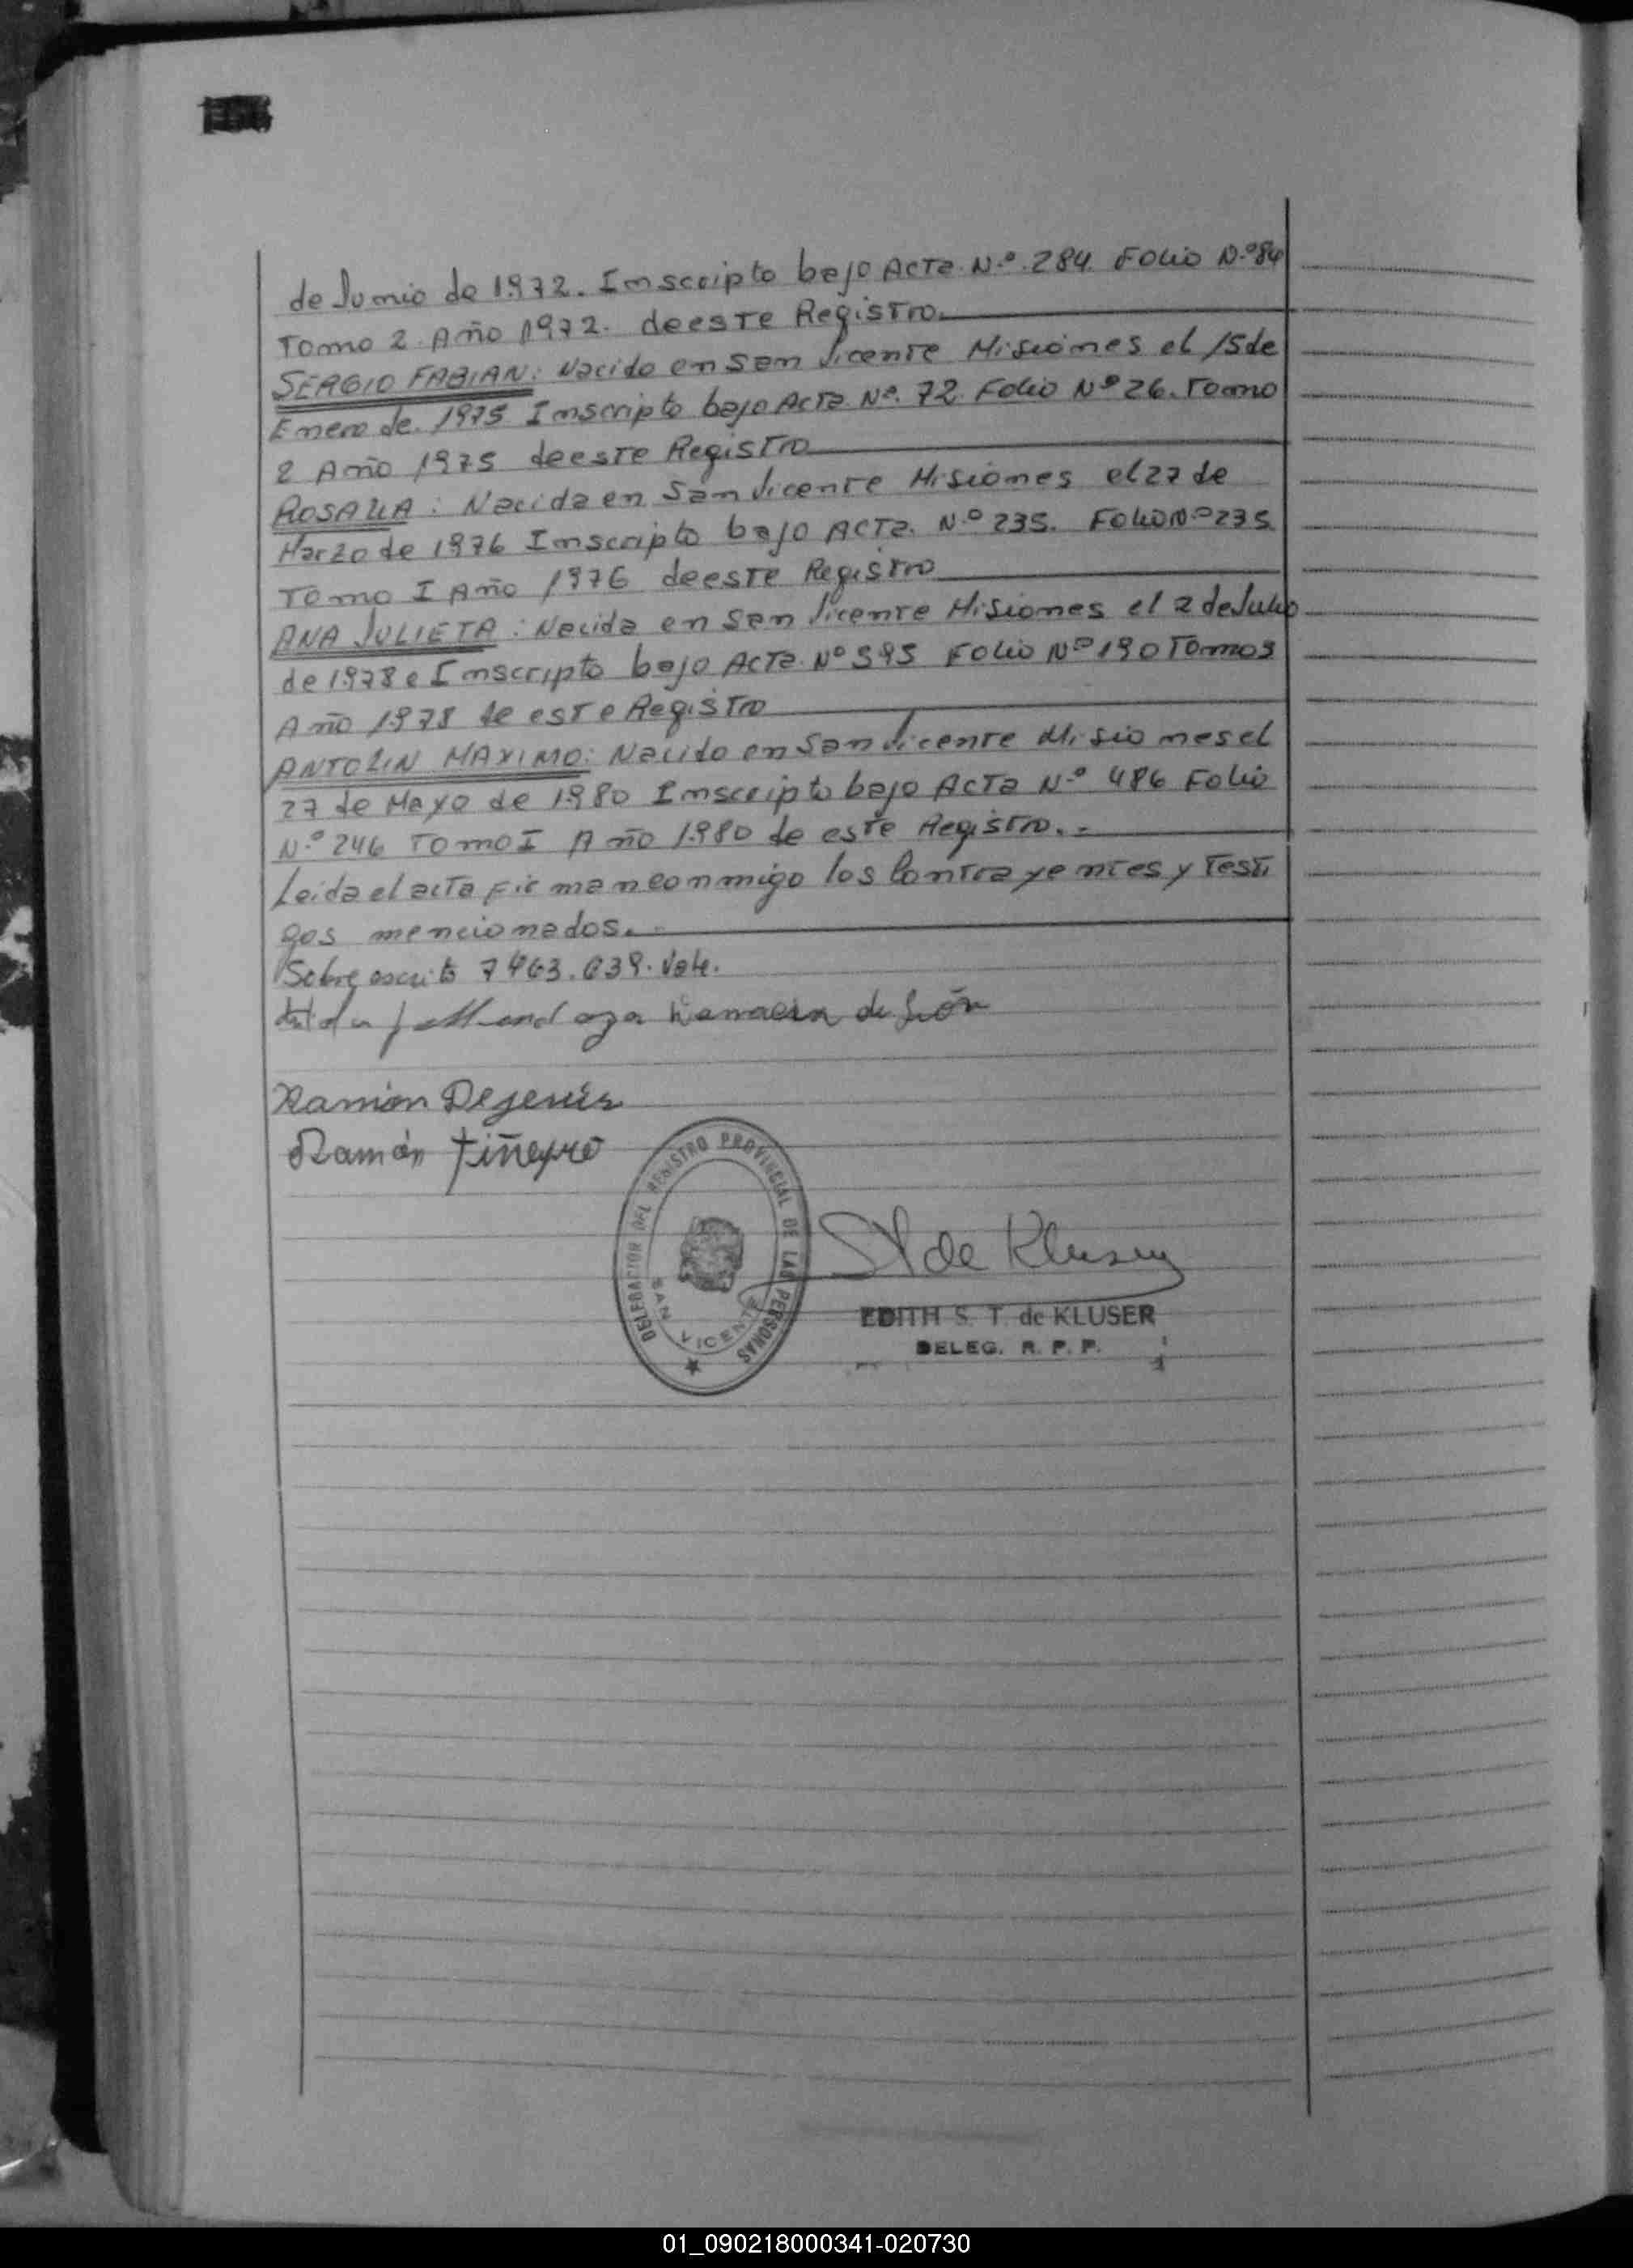 de Junio de 1972. Inscripto bajo Acta N.º 284 Folio N.º 84
Tomo 2 Año 1972. de este Registro.
SERGIO FABIAN: Nacido en San Vicente Misiones el 15 de
Enero de 1975 Inscripto bajo Acta Nº. 72 Folio Nº 26. Tomo
2 Año 1975 de este Registro
ROSALIA: Nacida en San Vicente Misiones el 27 de
Marzo de 1976 Inscripto bajo Acta. N.º 235. Folio N.º 235
Tomo I Año 1976 de este Registro
ANA JULIETA: Nacida en San Vicente Misiones el 2 de Julio
de 1978 Inscripto bajo Acta Nº 595 Folio Nº 190 Tomo 3
Año 1978 de este Registro
ANTOLIN MAXIMO: Nacido en San Vicente Misiones el
27 de Mayo de 1980 Inscripto bajo Acta N.º 486 Folio
N.º 246 Tomo I Año 1980 de este Registro.-
Leida el acta firman conmigo los Contrayentes y Testi
gos mencionados.-
Sobre escrito 7463.639. Vale.
de León
Ramón Dejesús
Ramón Piñeyro
DELEGACION DEL REGISTRO PROVINCIAL DE LAS PERSONAS
SAN VICENTE
de Kluser
EDITH S. T. de KLUSER
DELEG. R. P. P.
01_090218000341-020730